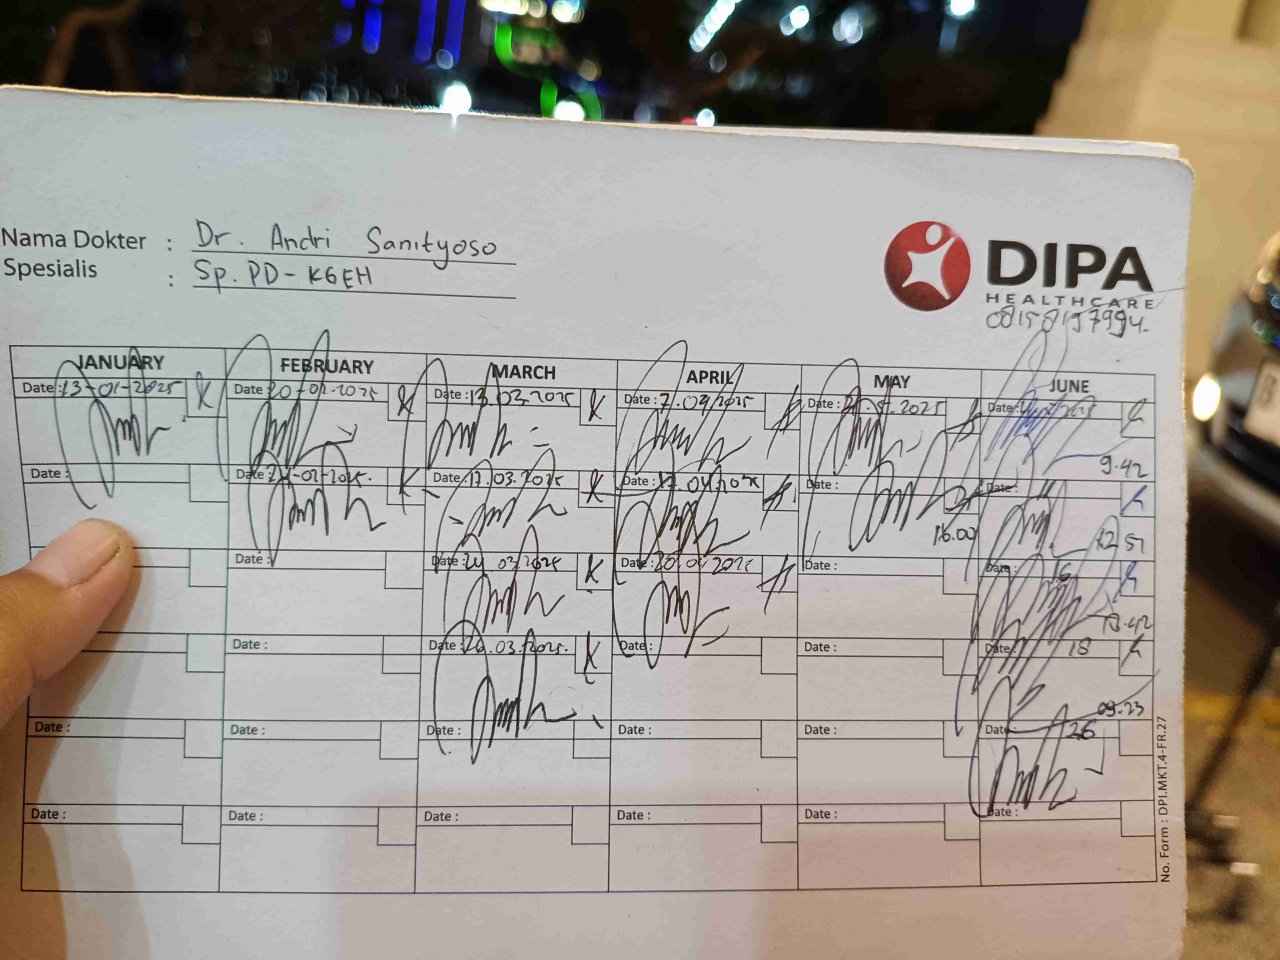 Nama Dokter : Dr. Andri Sanityoso
Spesialis : Sp. PD - KGEH
DIPA
HEALTHCARE
JANUARY FEBRUARY MARCH APRIL MAY JUNE
Date : 13-01-2025 Date 20-02-2025 Date : 13.03.2025 Date : 7.04/2025 Date : .2025 Date :
9.42
Date : Date -02-2025. Date : 17.03.2025 Date : 17.04/2025 Date : Date :
16.00 12.57
Date : Date : 24 03/2025 Date : 20.04/2025 Date : Date : 16
13.42
Date : Date : 26.03.2025. Date : Date : Date : 18
09.23
Date : Date : Date : Date : Date : Date : 26
Date : Date : Date : Date : Date : Date :
No. Form : DPI.MKT.4-FR.27